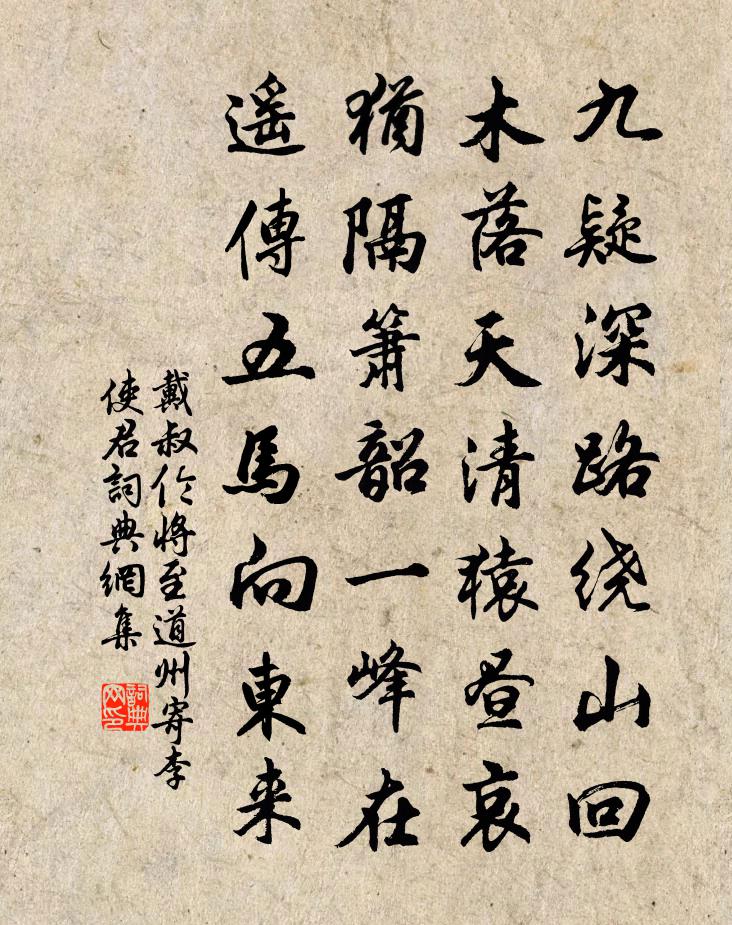 九疑深路绕山回
木落天清猿昼哀
猶隔簫韶一峰在
遥傳五馬向東来
戴叔伦將至道州寄李
使君詞典網集
詞典
网印